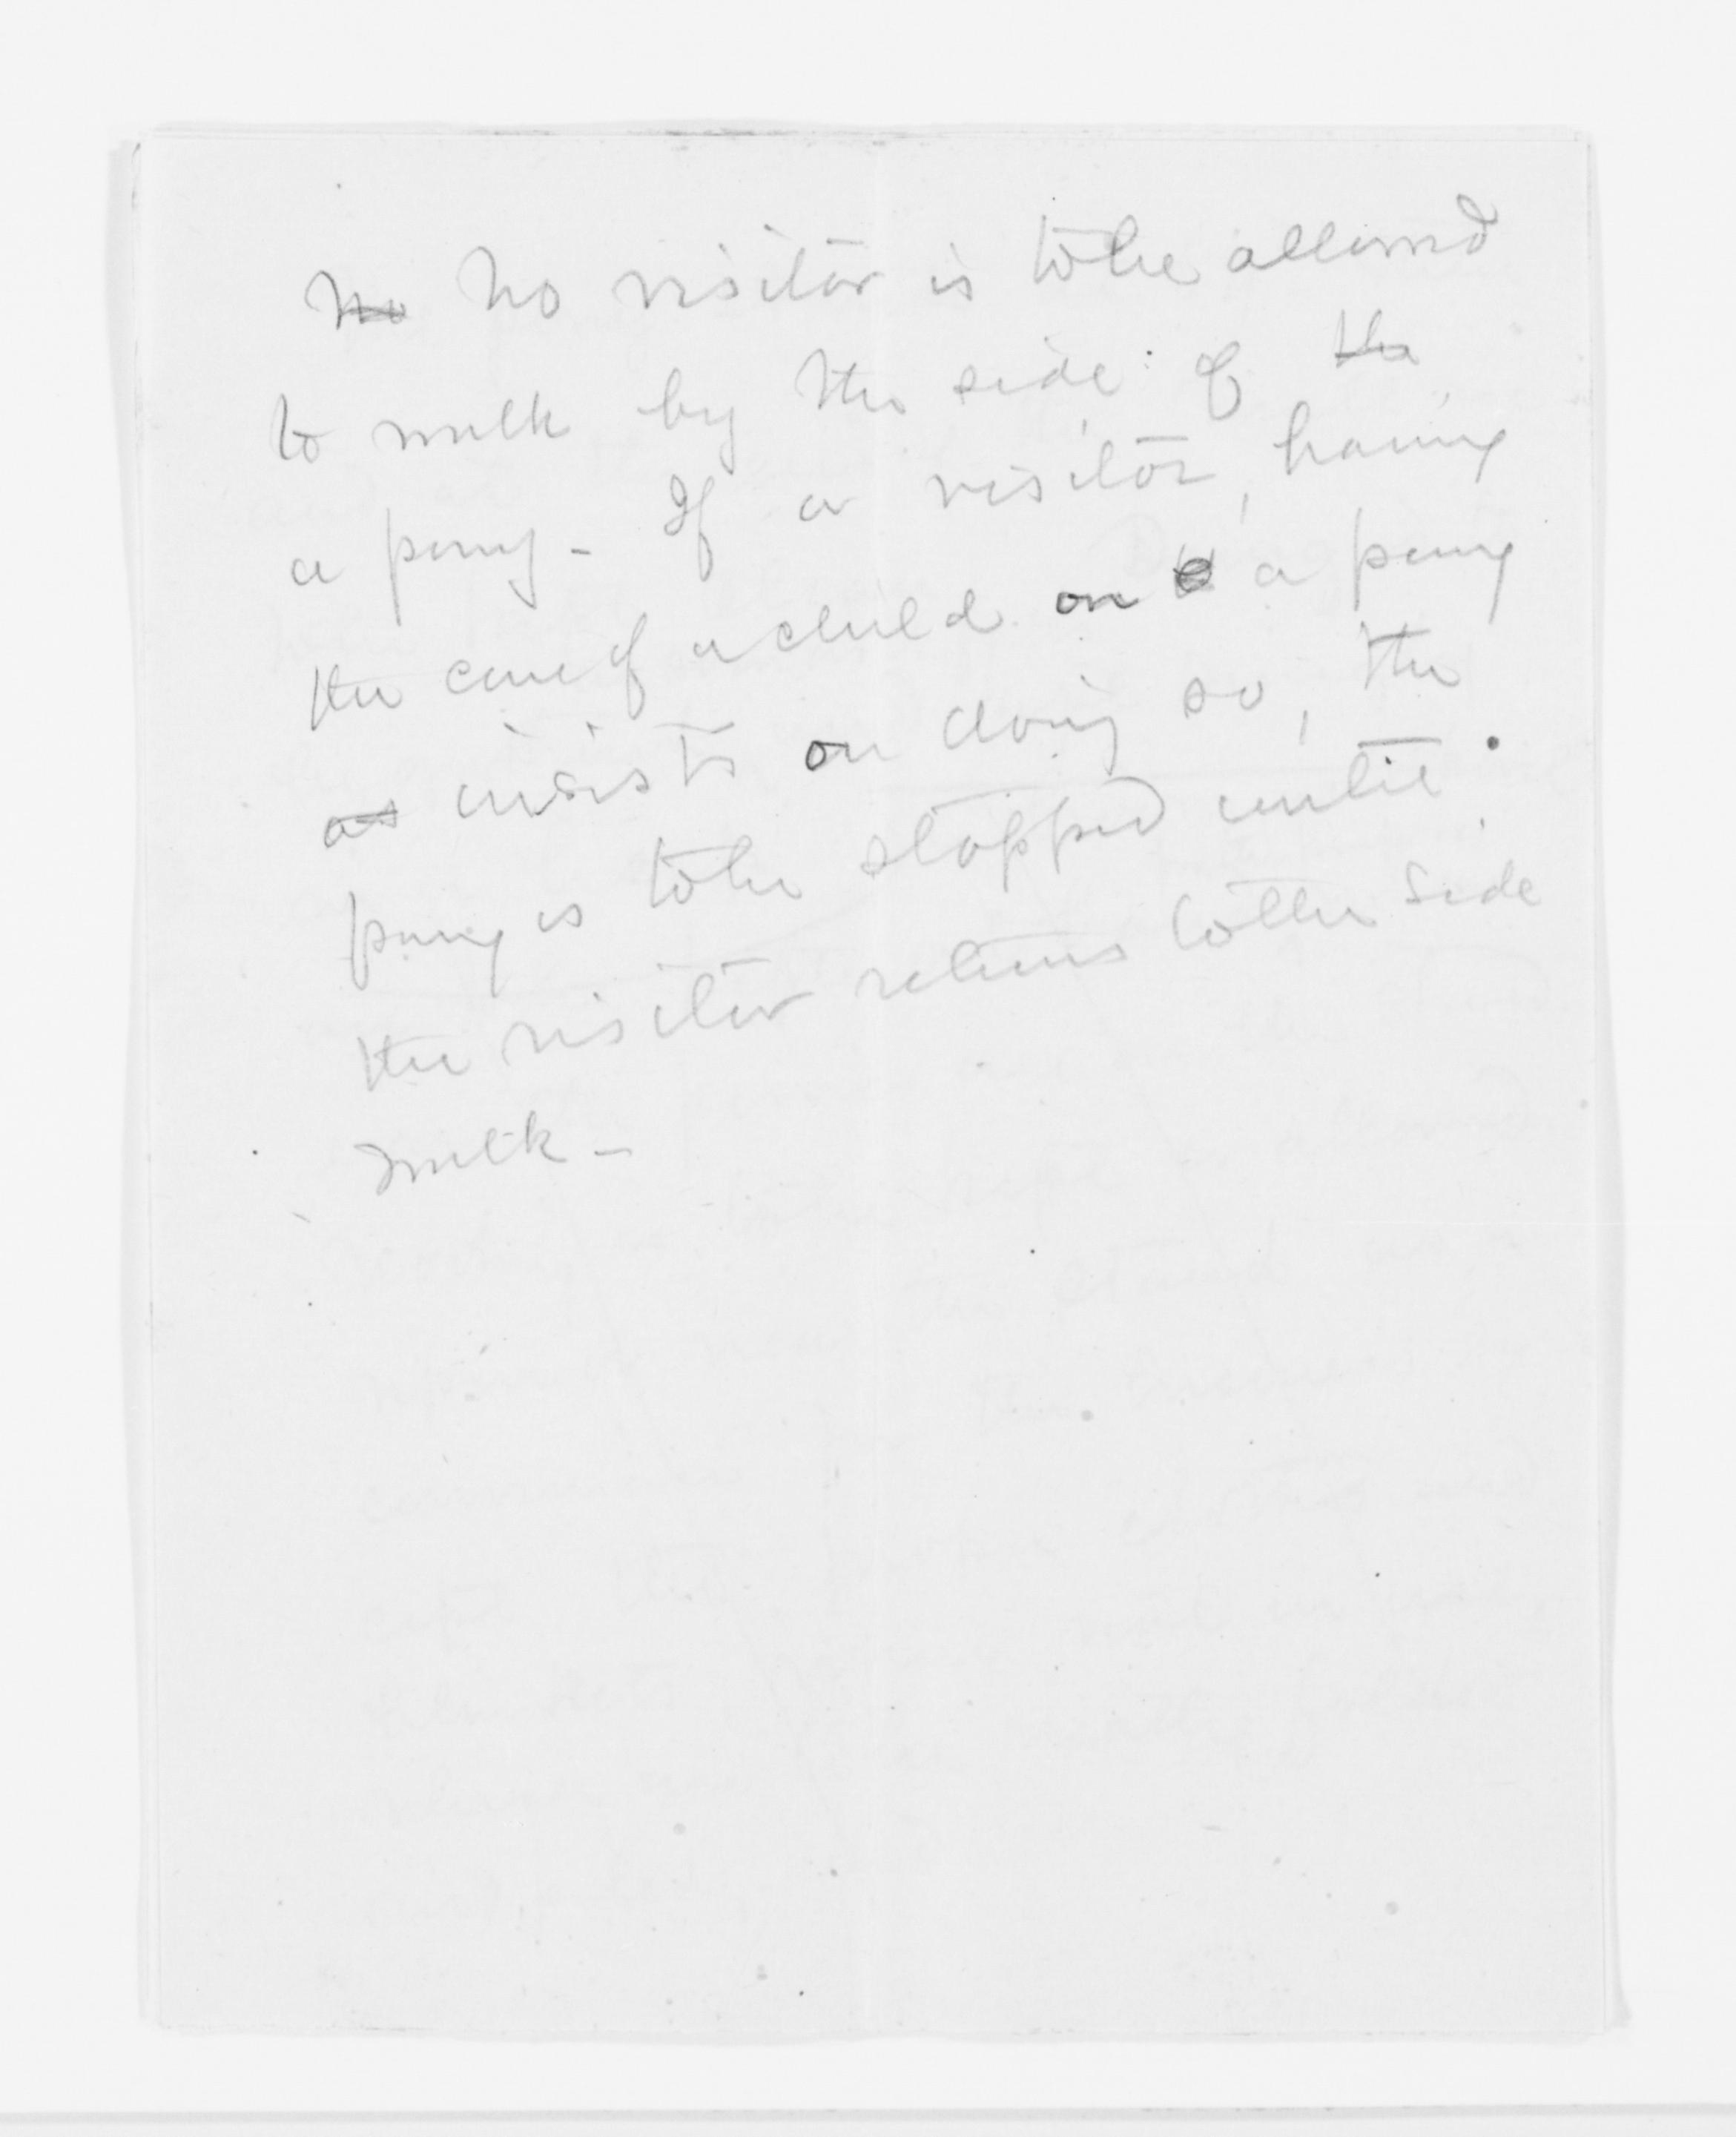 No No visitor is to be allowed
to walk by the side of the
a pony - If a visitor, having
the care of a child on a pony
as insists on doing so, the
pony is to be stopped until
the visitor returns to the side
walk -